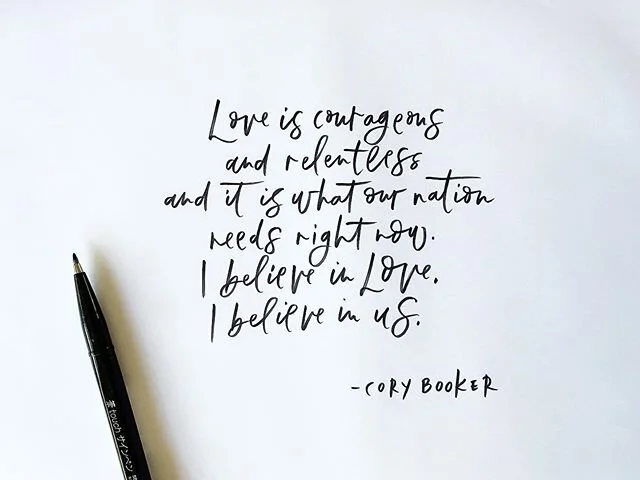 Love is courageous
and relentless
and it is what our nation
needs right now.
I believe in Love.
I believe in us.
-CORY BOOKER
touch サインペン